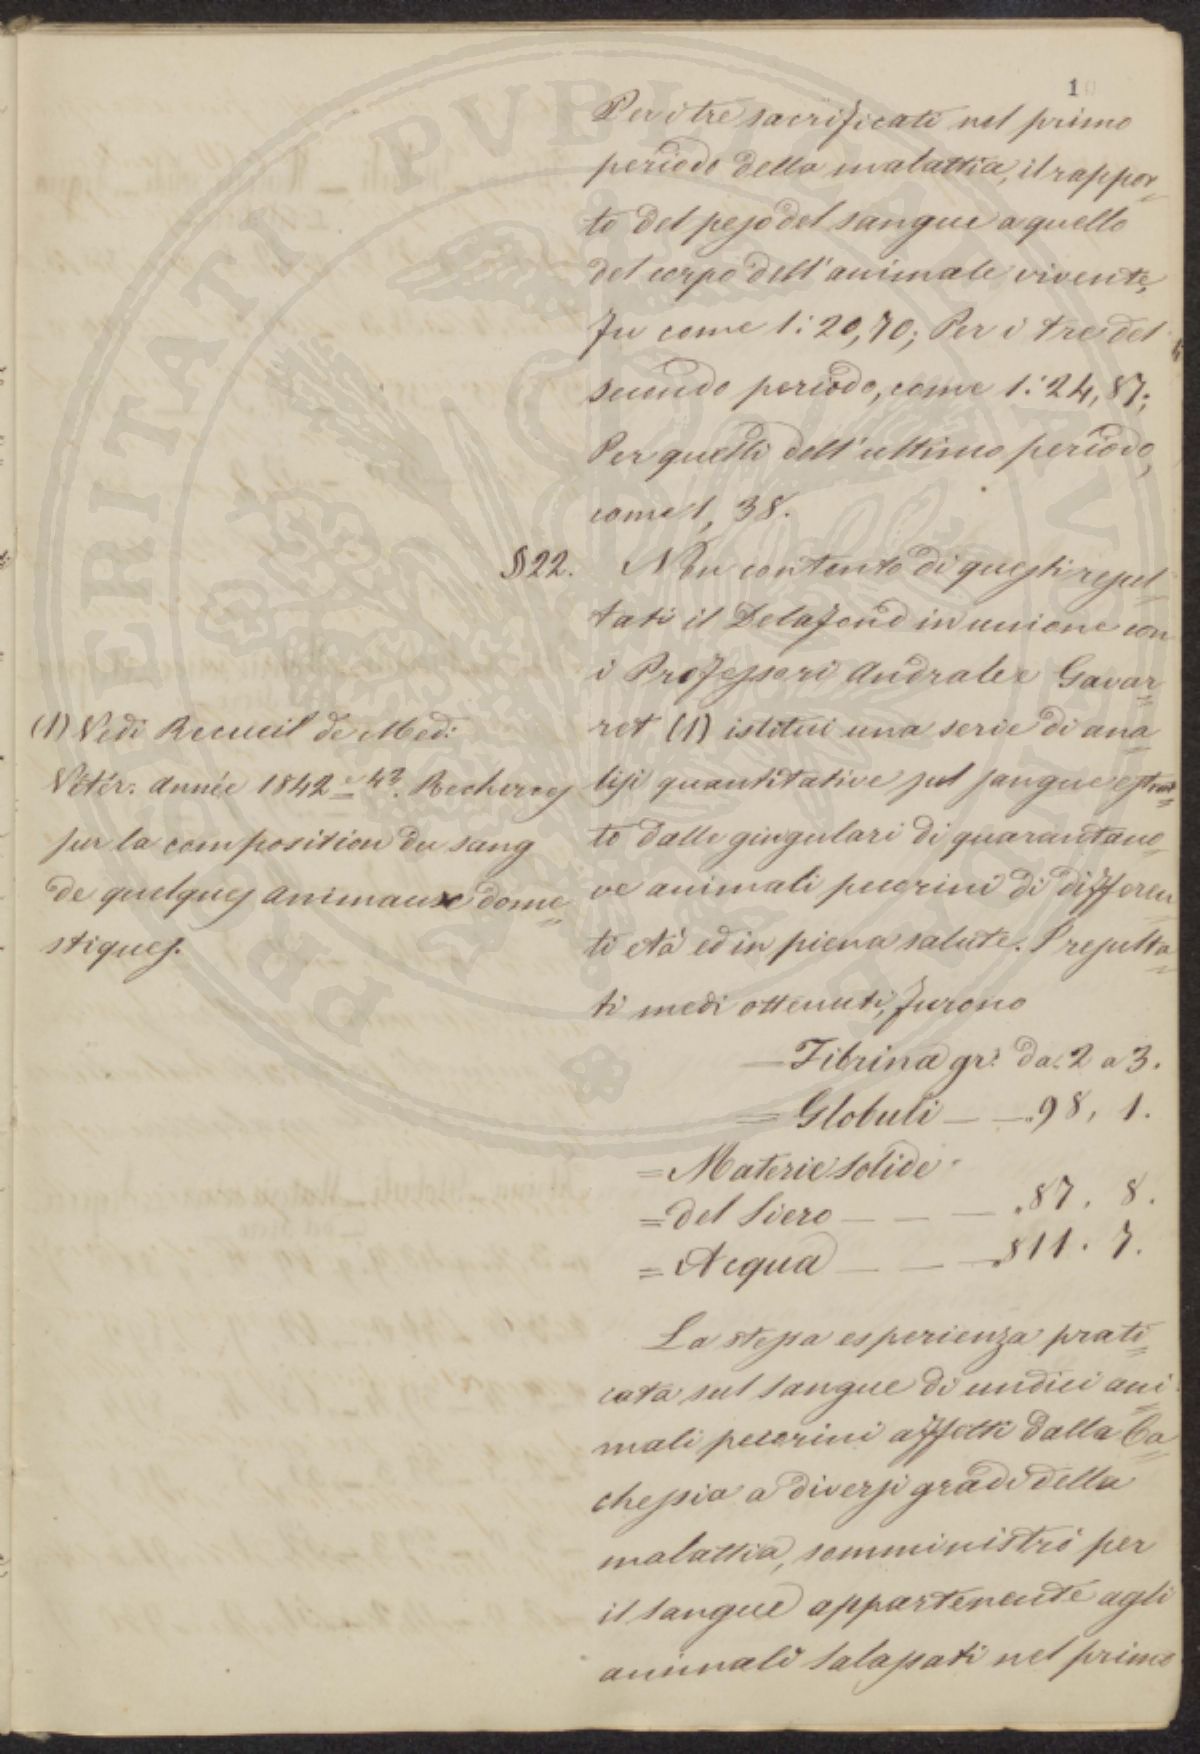 10
Per i tre sacrificati nel primo
periodo della malattia, il rappor
to del peso del sangue a quello
del corpo dell'animale vivente,
fu come 1:20,70; Per i tre del
secondo periodo, come 1:24,87;
Per quelli dell'ultimo periodo,
come 1, 38.
§22. Non contento di questi resul
tati il Delafond in unione con
i Professori Andral e Gavar
ret (1) istituì una serie di ana
lisi quantitative sul sangue estrat
to dalle giugulari di quarantano
ve animali pecorini di differen
ti età ed in piena salute. I resulta
ti medi ottenuti, furono
— Fibrina gr: da: 2 a 3.
= Globuli — — .98, 1.
= Materie solide
= del siero — — — .87. 8.
= Acqua — — — .811. 7.
La stessa esperienza prati
cata sul sangue di undici ani
mali pecorini affetti dalla Ca
chessia a diversi gradi della
malattia, somministrò per
il sangue appartenente agli
animali salassati nel primo
(1) Vedi Recueil de Med:
Vétér: année 1842 = Recherces
sur la composition du sang
de quelques animaux dome
stiques.
PROSPERITATI PVBLICAE